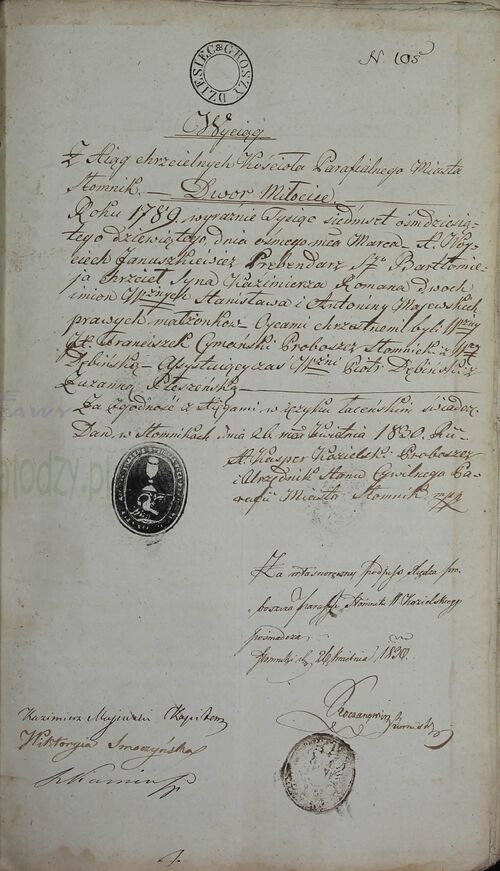 DZIESIEC GROSZY
N. 105
Wyciąg
Z Xiąg chrzcielnych Kościoła Parafialnego Miasta
Słomnik. — Dwor Miłocice
Roku 1789 wyraznie Tysiąc siedmset ośmdziesią-
tego dziewiątego dnia osmego mca Marca X. Woy-
ciech Januszkiewicz Prebendarz Sgo Bartłomie-
ja chrzcił Syna Kazimierza Romana dwoch
imion Stanisława i Antoniny Majewskich
prawych małżonkow — Oycami chrzestnemi byli
JX Franciszek Proboszcz Słomnik z
Dębińską — Assystuiącyczas Piotr Dębiński z
Zuzanną
Za zgodność z Xięgami w ięzyku łacińskim świadcz.
Dan w Słomnikach dnia 26 mca Kwietnia 1830. Ru
X. Kasper Kozielski Proboszcz
i Urzędnik Stanu Cywilnego Pa-
rafii Miasta Słomnik
Za własnoręczny podpis Xiędza pro-
boszcza Parafii Słomnik Kozielskiego
poswiadcza
26 Kwietnia 1830.
Kazimierz Majewski Kapitan
Wiktorya Smoczyńska